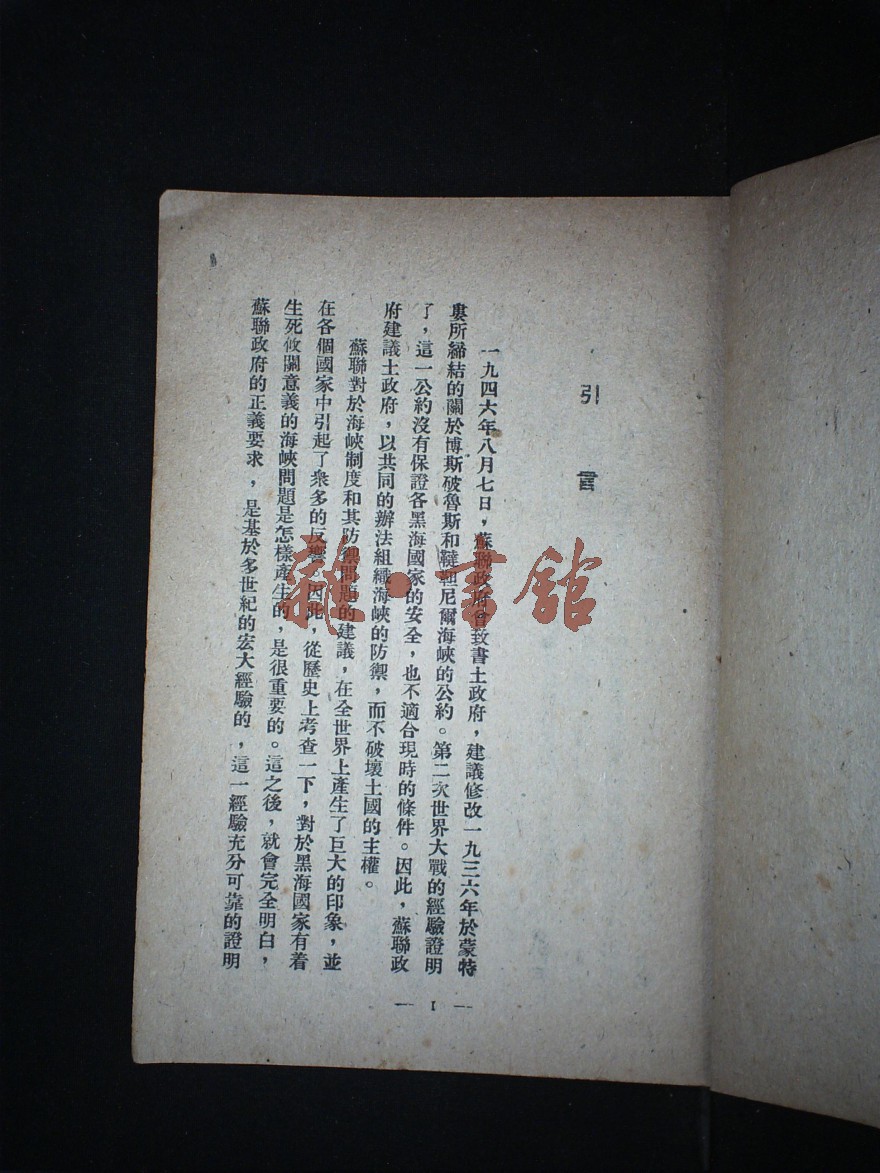 引言
一九四六年八月七日，蘇聯政府曾致書土政府，建議修改一九三六年於蒙特
婁所締結的關於博斯破魯斯和韃靼尼爾海峽的公約。第二次世界大戰的經驗證明
了，這一公約沒有保證各黑海國家的安全，也不適合現時的條件。因此，蘇聯政
府建議土政府，以共同的辦法組織海峽的防禦，而不破壞土國的主權。
蘇聯對於海峽制度和其防禦問題的建議，在全世界上產生了巨大的印象，並
在各個國家中引起了衆多的反響。因此，從歷史上考查一下，對於黑海國家有着
生死攸關意義的海峽問題是怎樣產生的，是很重要的。這之後，就會完全明白，
蘇聯政府的正義要求，是基於多世紀的宏大經驗的，這一經驗充分可靠的證明
— 1 —
龍·書館